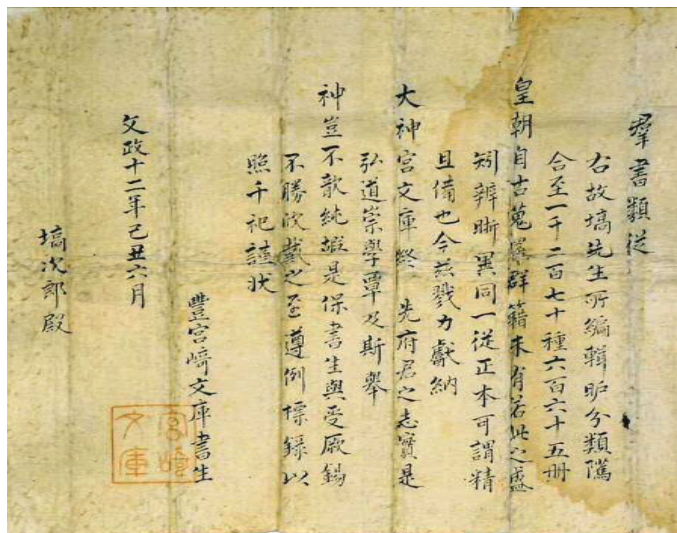 羣書類從
右故塙先生所編輯昈分類隲
合至一千二百七十種六百六十五册
皇朝自古蒐羅群籍未有若此之盛
矧辨晣異同一從正本可謂精
且備也今玆戮力獻納
大神宮文庫終 先府君之志實是
弘道崇學覃及斯舉
神豈不歆純嘏是保書生與受厥錫
不勝欣戴之至遵例標錄以
照千祀謹狀
豐宮﨑文庫書生
文政十二年己丑六月
塙次郎殿
宮崎文庫